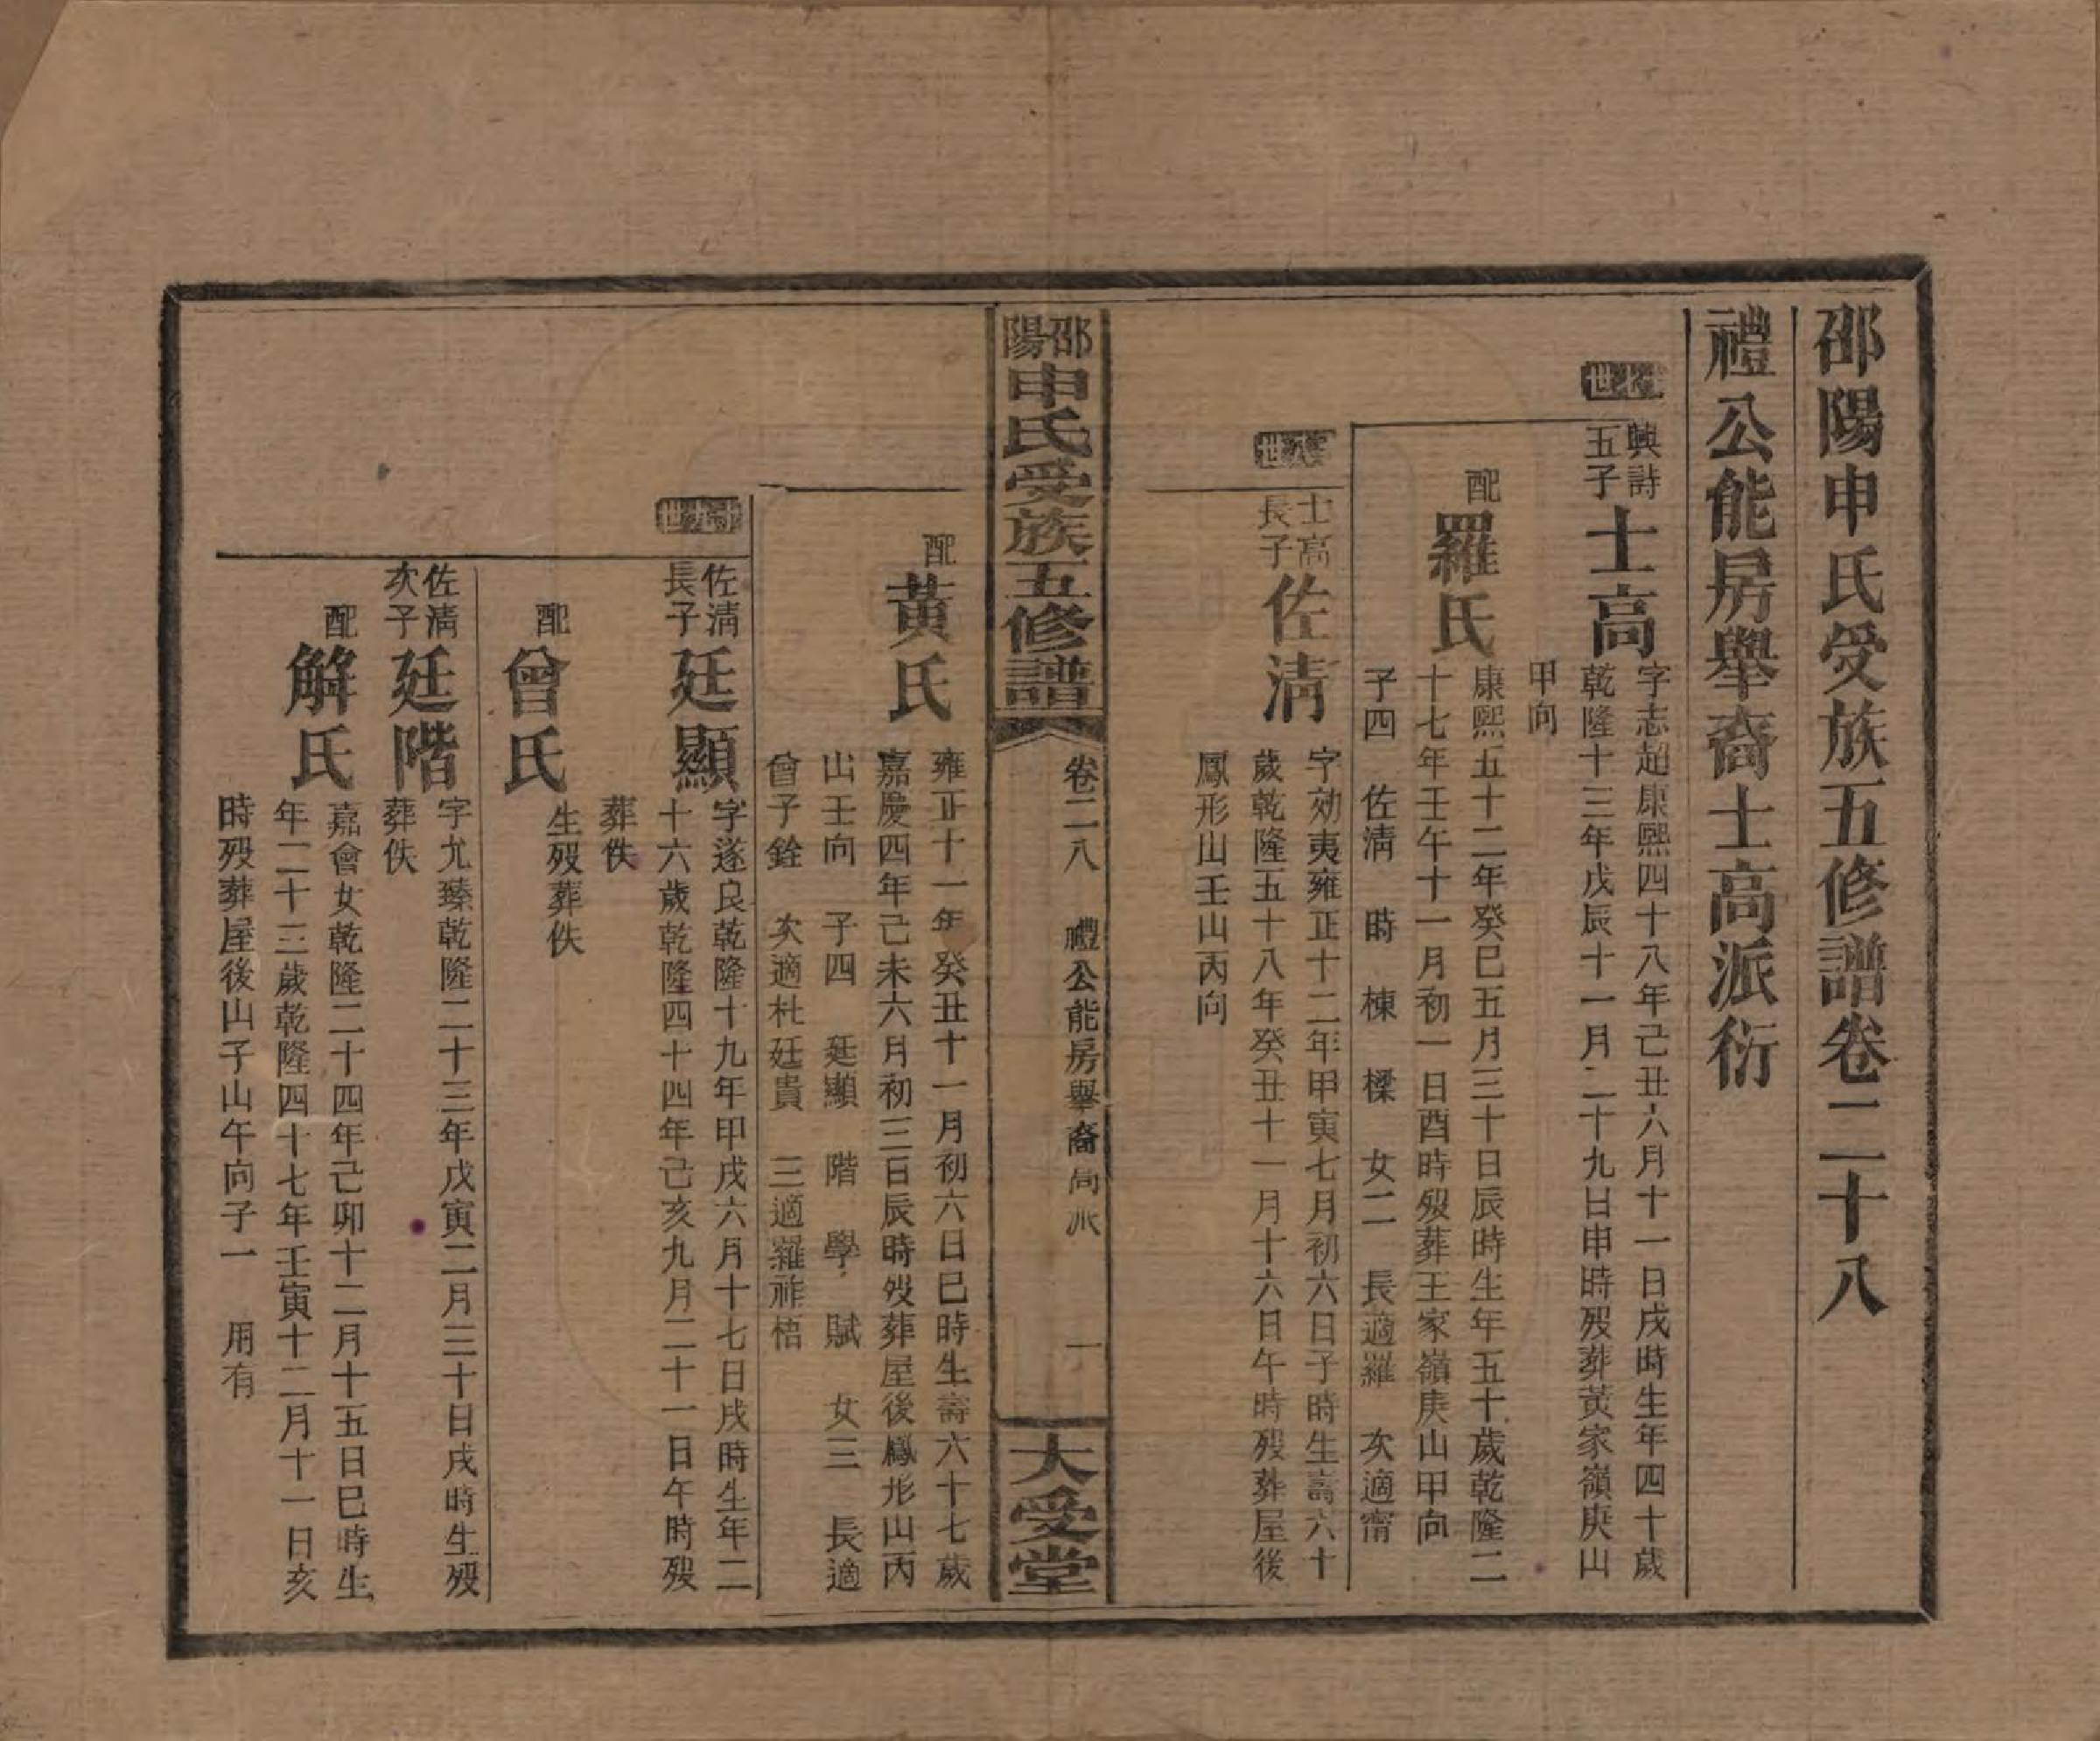 邵陽申氏受族五修譜卷二十八
禮公能房舉裔士高派衍
世
興詩
五子
士高
字志超康熙四十八年己丑六月十一日戌時生年四十歲
乾隆十三年戊辰十一月二十九日申時歿葬黃家嶺庚山
甲向
配
羅氏
康熙五十二年癸巳五月三十日辰時生年五十歲乾隆二
十七年壬午十一月初一日酉時歿葬王家嶺庚山甲向
子四 佐淸 時 棟 樑 女二 長適羅 次適甯
世
士高
長子
佐淸
字効夷雍正十二年甲寅七月初六日子時生壽六十
歲乾隆五十八年癸丑十一月十六日午時歿葬屋後
鳳形山壬山丙向
邵陽申氏受族五修譜
卷二八 禮公能房舉裔高派 一
大受堂
配
黃氏
雍正十一年癸丑十一月初六日巳時生壽六十七歲
嘉慶四年己未六月初三日辰時歿葬屋後鳳形山丙
山壬向 子四 廷顯 階 學 賦 女三 長適
曾子銓 次適杜廷貴 三適羅祚梧
世
佐淸
長子
廷顯
字遂良乾隆十九年甲戌六月十七日戌時生年二
十六歲乾隆四十四年己亥九月二十一日午時歿
葬佚
配
曾氏
生歿葬佚
佐淸
次子
廷階
字尤臻乾隆二十三年戊寅二月三十日戌時生歿
葬佚
配
解氏
嘉會女乾隆二十四年己卯十二月十五日巳時生
年二十三歲乾隆四十七年壬寅十二月十一日亥
時歿葬屋後山子山午向子一 用有